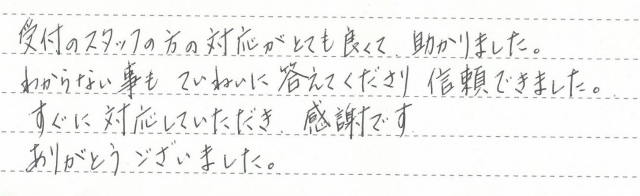 受付のスタッフの方の対応がとても良くて、助かりました。
わからない事も ていねいに 答えてくださり 信頼できました。
すぐに 対応していただき、感謝です
ありがとうございました。